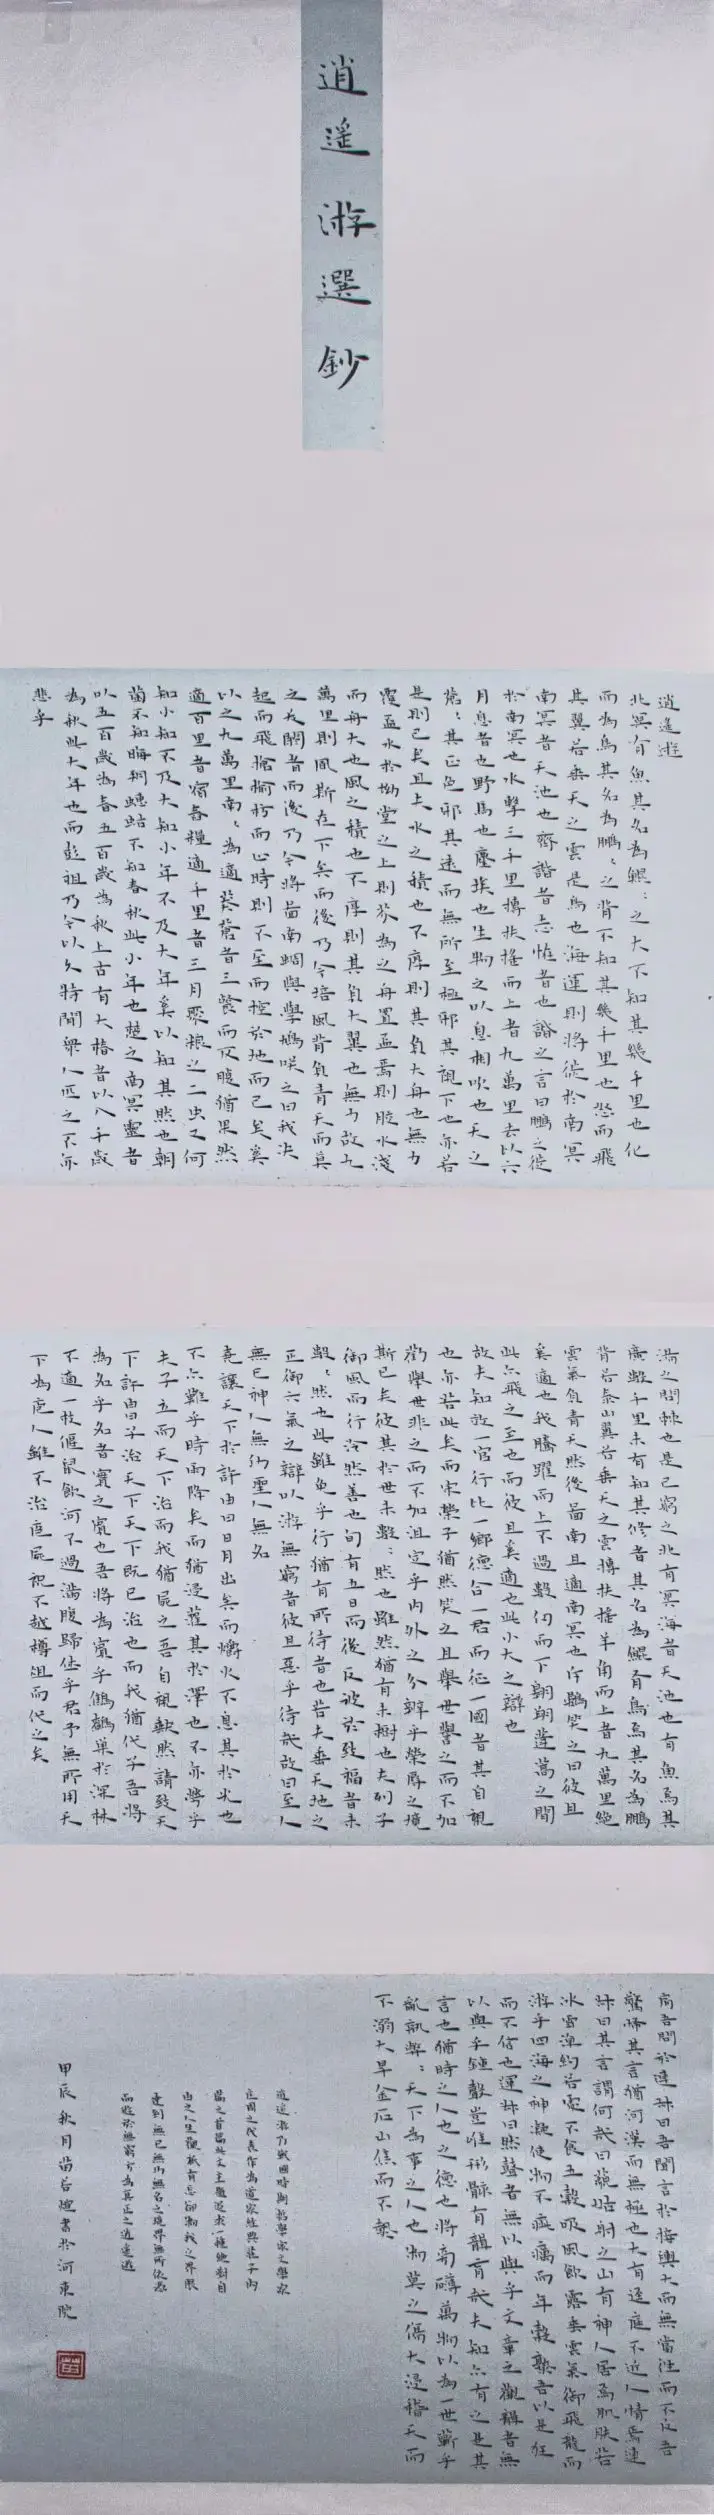 逍遙游選鈔
逍遙游
北冥有魚其名為鯤：之大不知其幾千里也化
而為鳥其名為鵬：之背不知其幾千里也怒而飛
其翼若垂天之雲是鳥也海運則將徙於南冥
南冥者天池也齊諧者志怪者也諧之言曰鵬之徙
於南冥也水擊三千里摶扶搖而上者九萬里去以六
月息者也野馬也塵埃也生物之以息相吹也天之
蒼：其正色邪其遠而無所至極邪其視下也亦若
是則已矣且夫水之積也不厚則其負大舟也無力
覆盃水於坳堂之上則芥為之舟置盃焉則膠水淺
而舟大也風之積也不厚則其負大翼也無力故九
萬里則風斯在下矣而後乃今培風背負青天而莫
之夭閼者而後乃今將啚南蜩與學鳩咲之曰我決
起而飛搶榆枋而止時則不至而控於地而已矣奚
以之九萬里南：為適莽蒼者三飡而反腹猶果然
適百里者宿舂糧適千里者三月聚糧之二虫又何
知小知不及大知小年不及大年奚以知其然也朝
菌不知晦朔蟪蛄不知春秋此小年也楚之南冥靈者
以五百歲為春五百歲為秋上古有大椿者以八千歲
為秋此大年也而彭祖乃今以久特聞眾人匹之不亦
悲乎
湯之問棘也是已窮之北有冥海者天池也有魚焉其
廣數千里未有知其修者其名為鯤有鳥焉其名為鵬
背若泰山翼若垂天之雲摶扶搖羊角而上者九萬里絕
雲氣負青天然後啚南且適南冥也斥鷃笑之曰彼且
奚適也我騰躍而上不過數仞而下翱翔蓬蒿之間
此亦飛之至也而彼且奚適也此小大之辯也
故夫知效一官行比一鄉德合一君而征一國者其自視
也亦若此矣而宋榮子猶然笑之且舉世譽之而不加
勸舉世非之而不加沮定乎內外之分辯乎榮辱之境
斯已矣彼其於世未數：然也雖然猶有未樹也夫列子
御風而行泠然善也旬有五日而後反彼於致福者未
數：然也此雖免乎行猶有所待者也若夫乘天地之
正御六氣之辯以游無窮者彼且惡乎待哉故曰至人
無已神人無功聖人無名
堯讓天下於許由曰日月出矣而爝火不息其於光也
不亦難乎時雨降矣而猶浸灌其於澤也不亦勞乎
夫子立而天下治而我猶屍之吾自視缺然請致天
下許由曰子治天下天下既已治也而我猶代子吾將
為名乎名者實之賓也吾將為賓乎鷦鷯巢於深林
不過一枝偃鼠飲河不過滿腹歸休乎君予無所用天
下為庖人雖不治庖屍祝不越樽俎而代之矣
肩吾問於連叔曰吾聞言於接輿大而無當往而不反吾
驚怖其言猶河漢而無極也大有逕庭不近人情焉連
叔曰其言謂何哉曰藐姑射之山有神人居焉肌膚若
冰雪淖約若處不食五穀吸風飲露乘雲氣御飛龍而
游乎四海之神凝使物不疵癘而年穀熟吾以是狂
而不信也連叔曰然瞽者無以與乎文章之觀聾者無
以與乎鐘鼓豈唯形骸有聾盲哉夫知亦有之是其
言也猶時之人也之德也將旁礴萬物以為一世蘄乎
亂孰弊：天下為事之人也物莫之傷大浸稽天而
不溺大旱金石山焦而不熱
逍遙游乃戰國時期哲學家文學家
莊周之代表作為道家經典莊子內
篇之首篇此文主題追求一種絕對自
由之人生觀祇有忘卻物我之界限
達到無己無功無名之境界無所依憑
而游於無窮方為真正之逍遙遊
甲辰秋月苗若煙書於河東院
苗